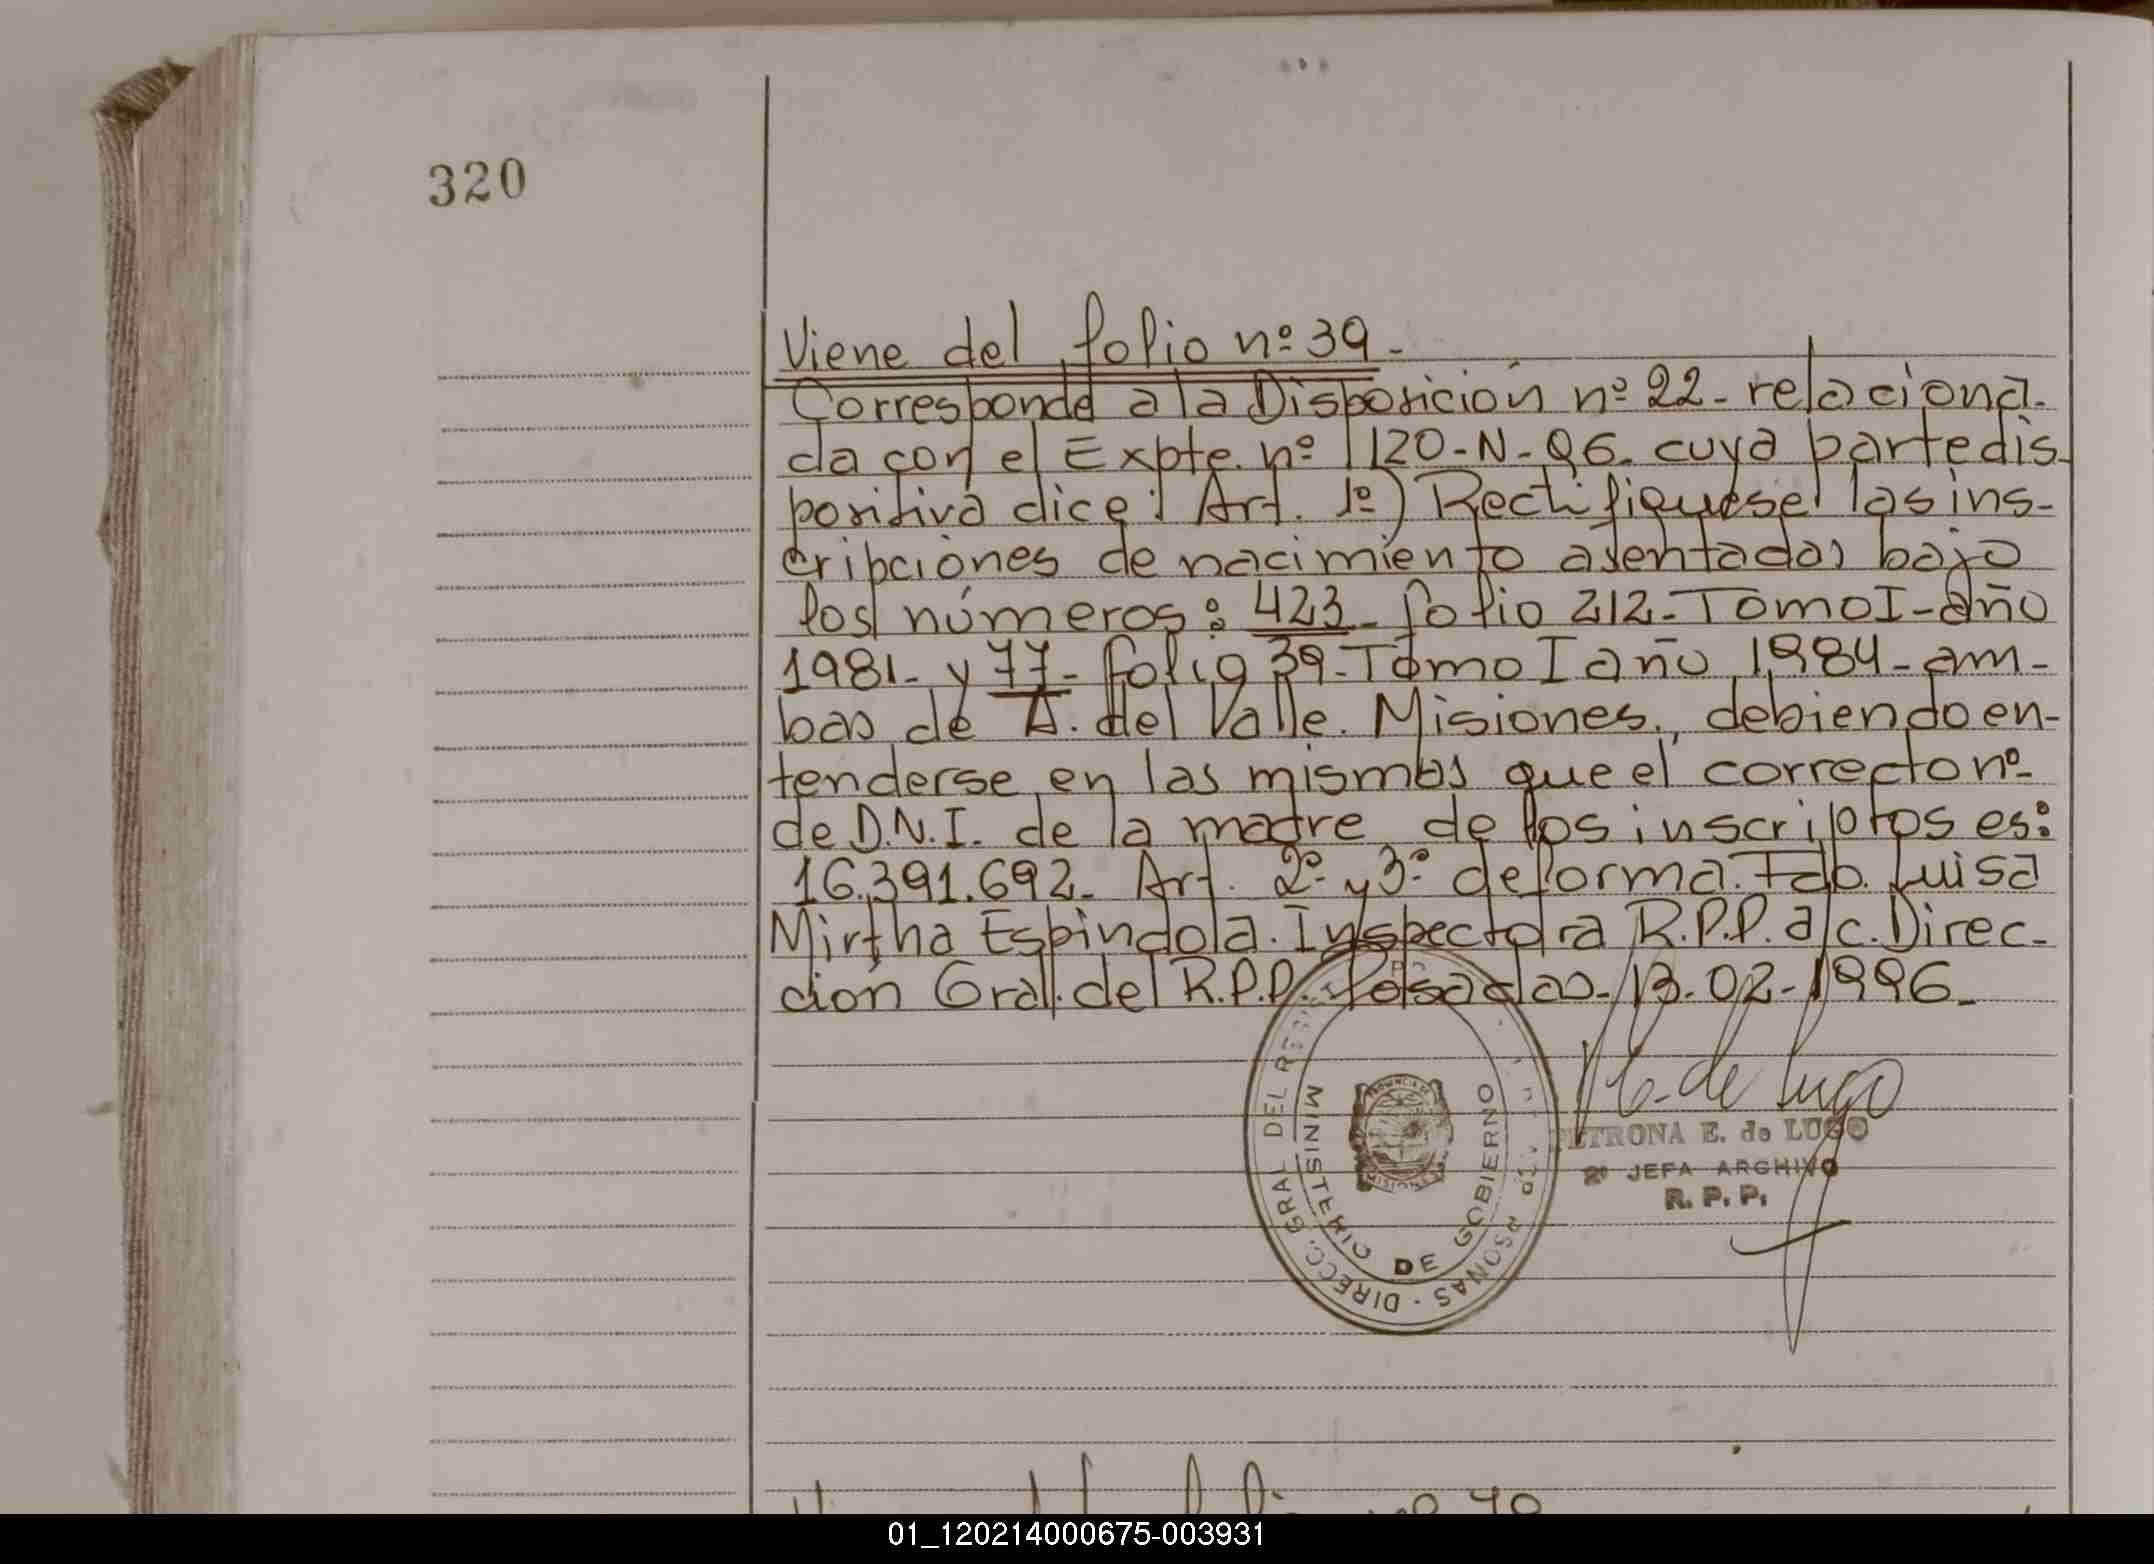 320
Viene del folio nº 39.-
Corresponde a la Disposición nº 22- relaciona-
da con el Expte. nº 1120-N-96. cuya parte dis-
positiva dice: Art. 1º) Rectifiquese las ins-
cripciones de nacimiento asentadas bajo
los números: 423- folio 212- Tomo I- año
1981- y 77- folio 39- Tomo I año 1984- am-
bas de A. del Valle. Misiones., debiendo en-
tenderse en las mismas que el correcto nº
de D.N.I. de la madre de los inscriptos es:
16.391.692- Art. 2º y 3º de forma. Fdo. Luisa
Mirtha Espindola. Inspectora R.P.P. a/c. Direc-
ción Gral. del R.P.P. Posadas- 13-02-1996-
E. de Lugo
PETRONA E. de LUGO
2º JEFA ARCHIVO
R. P. P.
DIRECC. GRAL DEL
MINISTERIO DE GOBIERNO
PROVINCIA DE
MISIONES
01_120214000675-003931